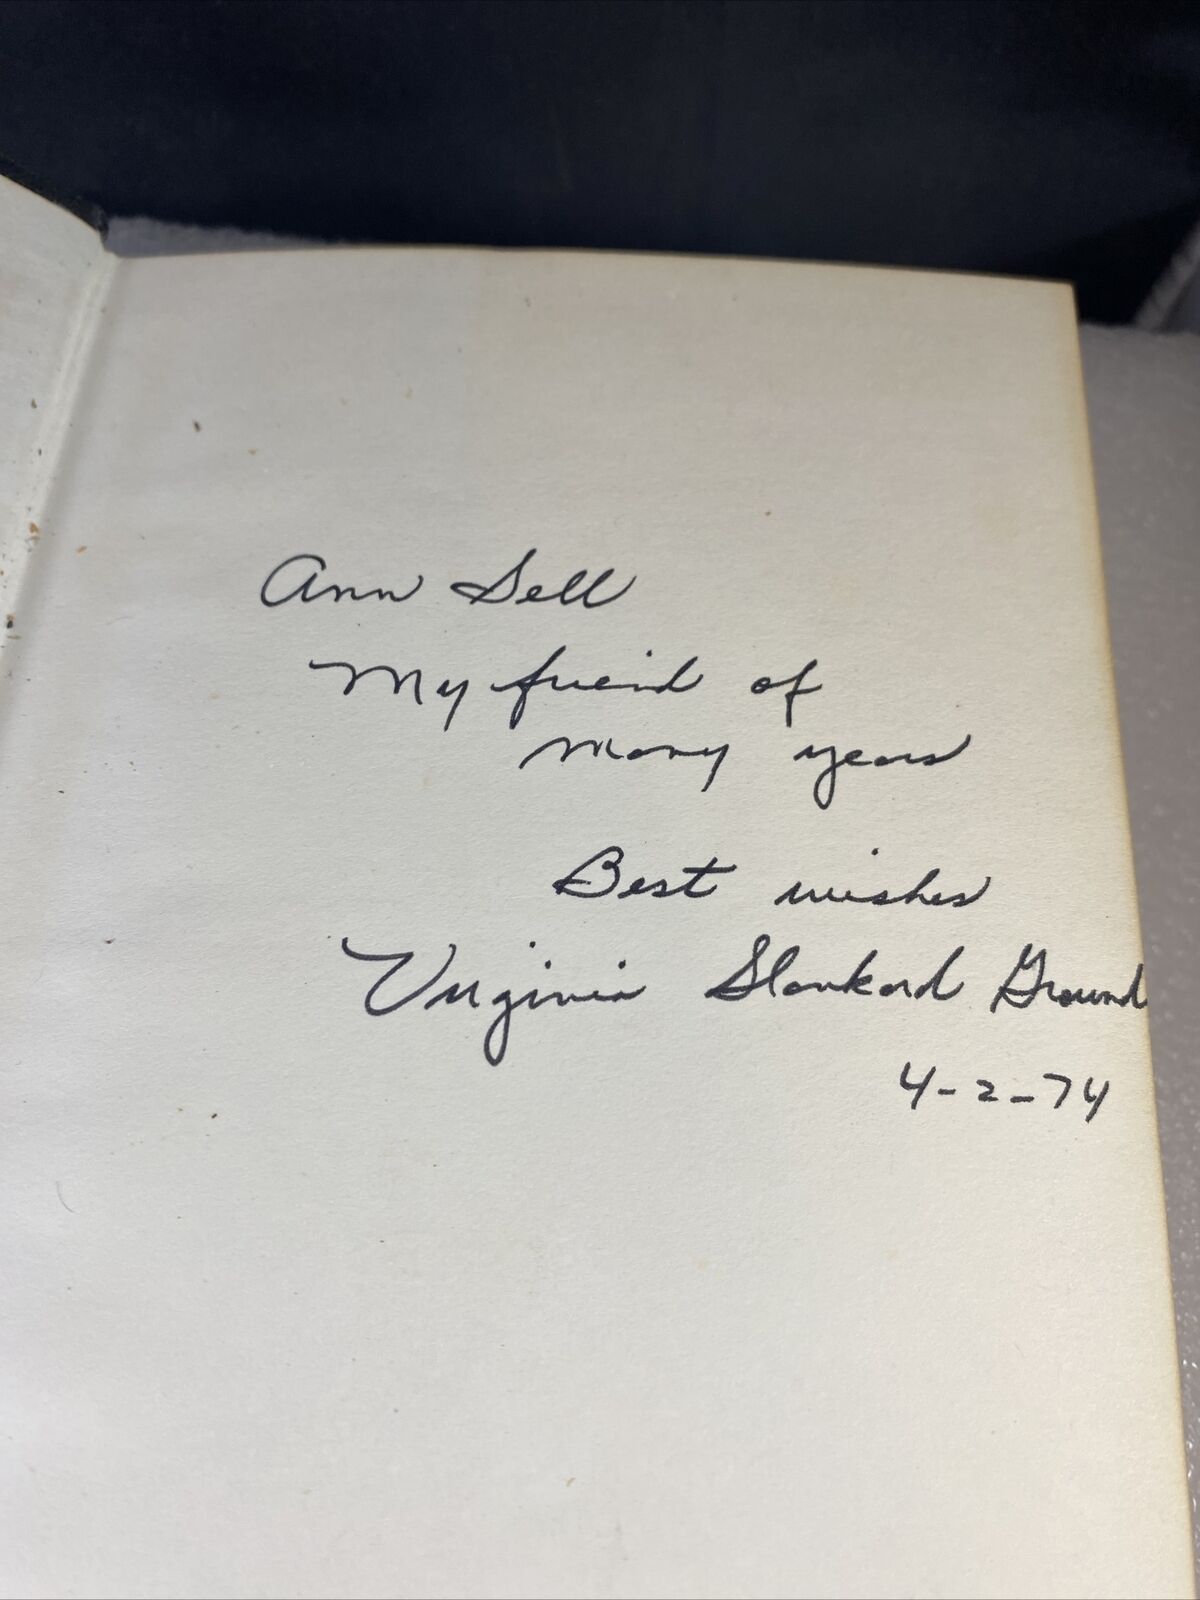 Ann Sell
My friend of
many years
Best wishes
Virginia Slankard Ground
4-2-74